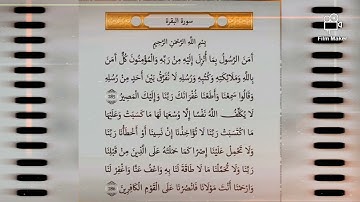 سورة البقرة
Film Maker
بِسْمِ اللَّهِ الرَّحْمَٰنِ الرَّحِيمِ
آمَنَ الرَّسُولُ بِمَا أُنْزِلَ إِلَيْهِ مِنْ رَبِّهِ وَالْمُؤْمِنُونَ كُلٌّ آمَنَ
بِاللَّهِ وَمَلَائِكَتِهِ وَكُتُبِهِ وَرُسُلِهِ لَا نُفَرِّقُ بَيْنَ أَحَدٍ مِنْ رُسُلِهِ
وَقَالُوا سَمِعْنَا وَأَطَعْنَا غُفْرَانَكَ رَبَّنَا وَإِلَيْكَ الْمَصِيرُ
لَا يُكَلِّفُ اللَّهُ نَفْسًا إِلَّا وُسْعَهَا لَهَا مَا كَسَبَتْ وَعَلَيْهَا
مَا اكْتَسَبَتْ رَبَّنَا لَا تُؤَاخِذْنَا إِنْ نَسِينَا أَوْ أَخْطَأْنَا رَبَّنَا
وَلَا تَحْمِلْ عَلَيْنَا إِصْرًا كَمَا حَمَلْتَهُ عَلَى الَّذِينَ مِنْ قَبْلِنَا
رَبَّنَا وَلَا تُحَمِّلْنَا مَا لَا طَاقَةَ لَنَا بِهِ وَاعْفُ عَنَّا وَاغْفِرْ لَنَا
وَارْحَمْنَا أَنْتَ مَوْلَانَا فَانْصُرْنَا عَلَى الْقَوْمِ الْكَافِرِينَ